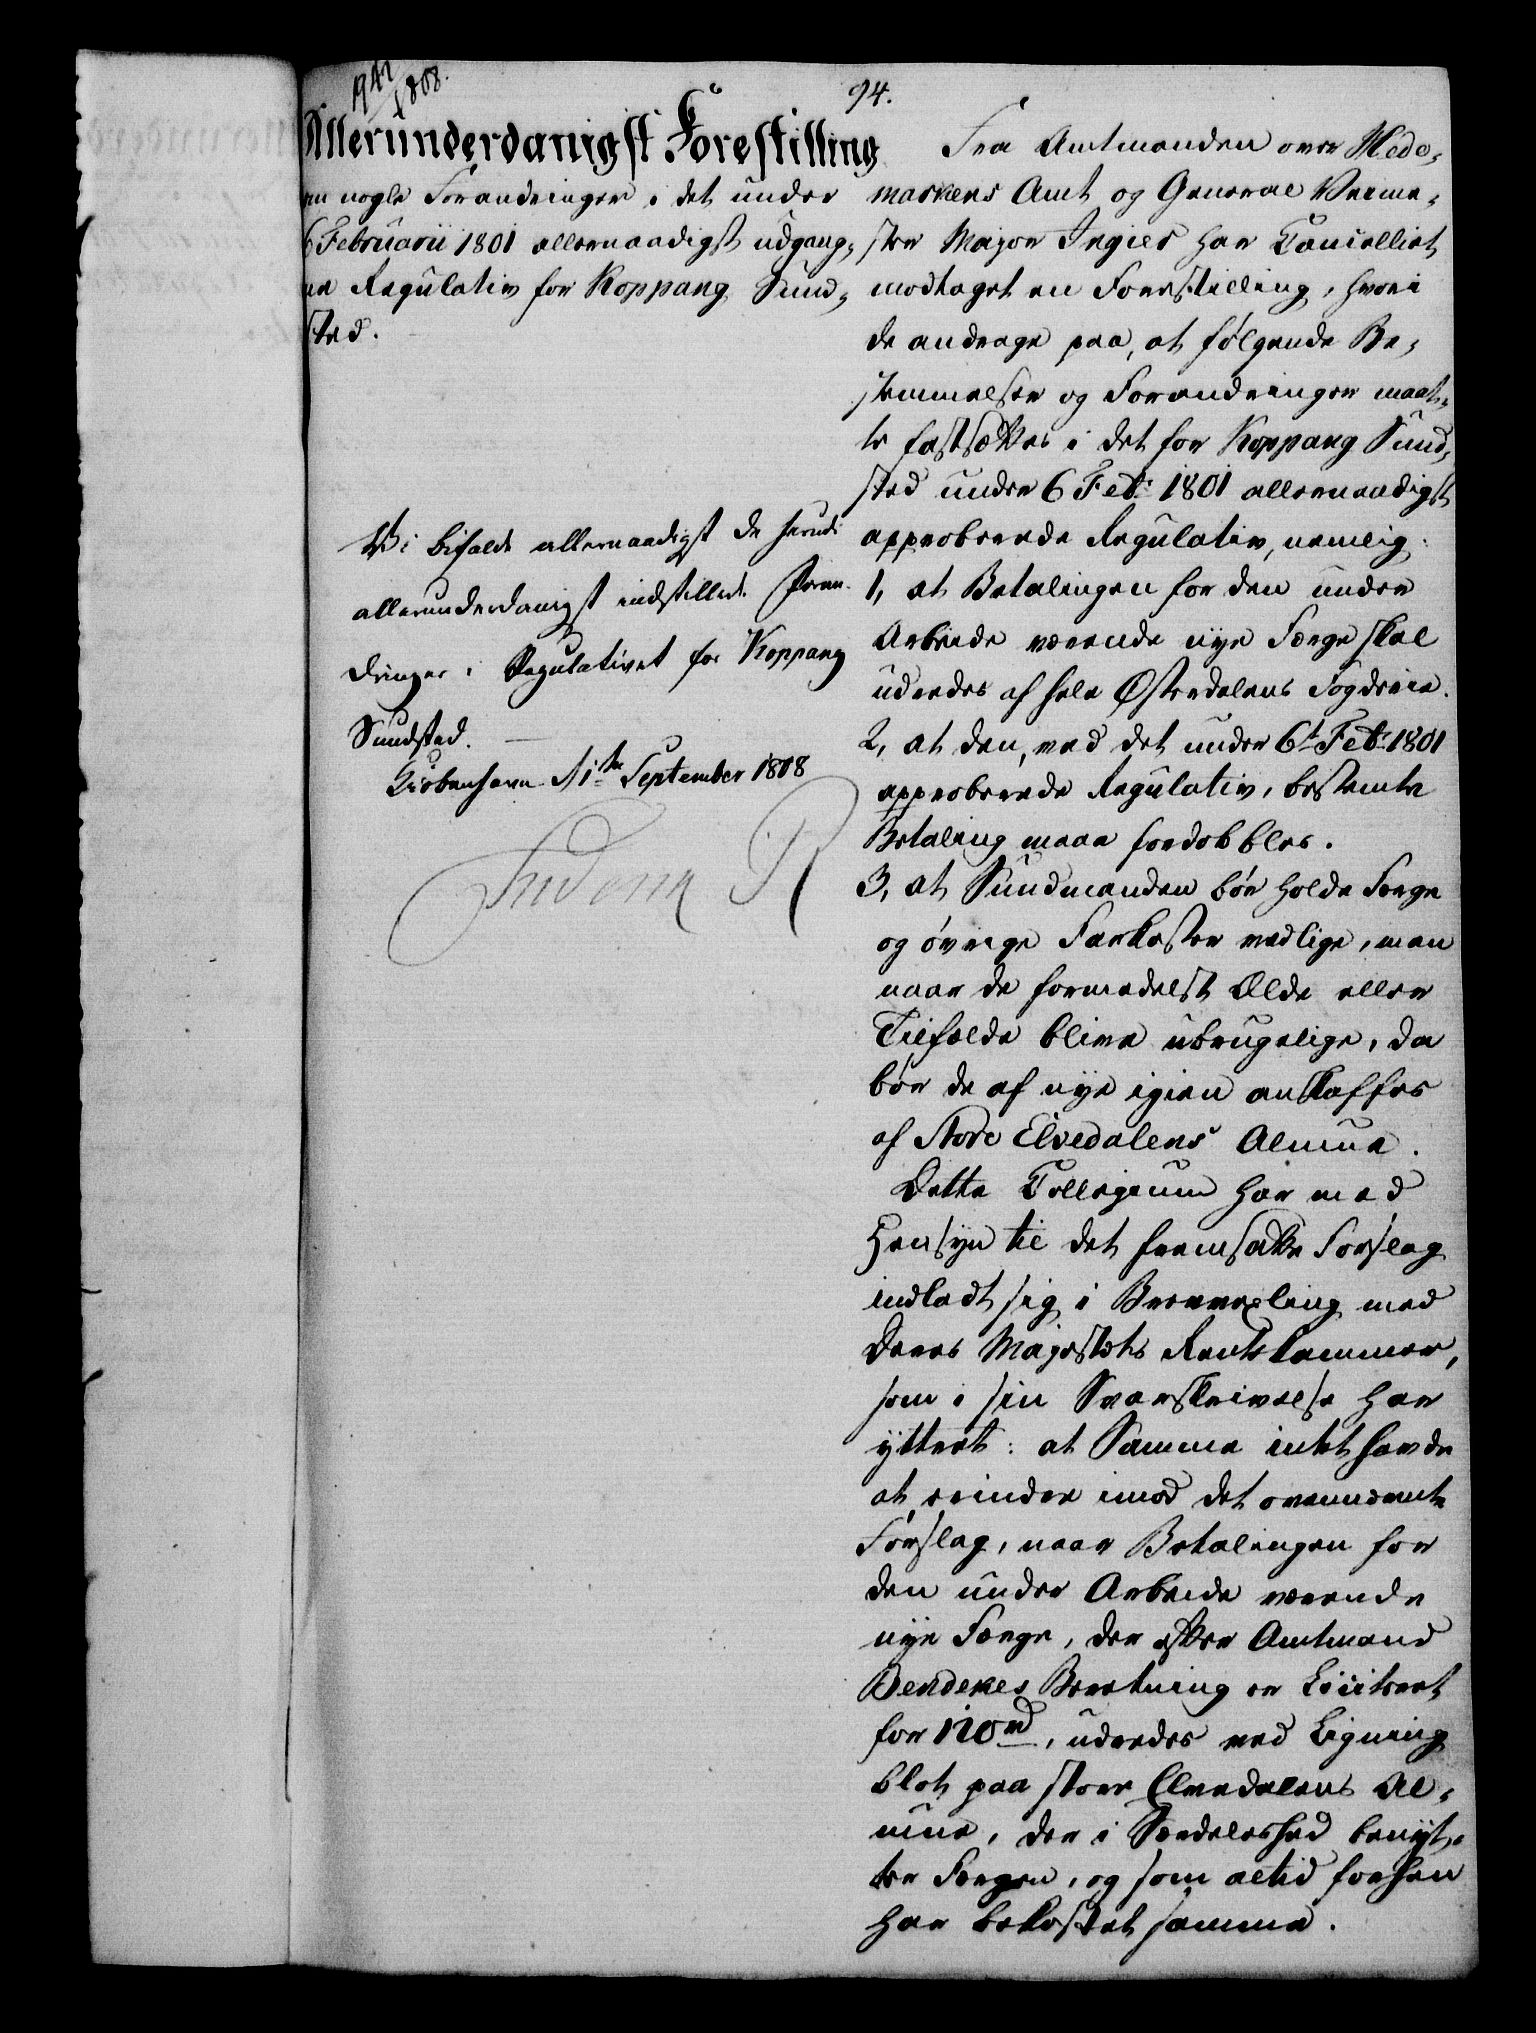 1942/1808.
94.
Allerunderdanigst Forestilling
om nogle Forandringer i det under
6 Februarii 1801 allernaadigst udgang-
ne Regulativ for Koppang Sund-
sted.
Vi bifalde allernaadigst de herudi
allerunderdanigst indstillede Foran-
dringer i Regulativet for Koppang
Sundsted.
Kiøbenhavn d. 1te September 1808
Frideric R
Fra Amtmanden over Hede-
markens Amt og General Veime-
ster Major Ingier har Cancelliet
modtaget en Forestilling, hvori
de andrage paa, at følgende Be-
stemmelser og Forandringer maat-
te fastsættes i det for Koppang Sund-
sted under 6 Febr. 1801 allernaadigst
approberede Regulativ, nemlig:
1, at Betalingen for den under
Arbeide værende nye Færge skal
udredes af hele Østerdalens Fogderie.
2, at den, ved det under 6t Febr. 1801
approberede Regulativ, bestemte
Betaling maae fordobbles.
3, at Sundmanden bør holde Færge
og øvrige Farkoster vedlige, men
naar de formedelst Ælde eller
Tilfælde blive ubrugelige, da
bør de af nye igien anskaffes
af Store Elvedalens Almue.
Dette Collegium har med
Hensyn til det fremsatte Forslag
indladt sig i Brevvexling med
Deres Majestæts Rentekammer,
som i sin Svarskrivelse har
yttret: at Samme intet havde
at erindre imod det ovennævnte
Forslag, naar Betalingen for
den under Arbeide værende
nye Færge, der efter Amtmand
Bendekes Beretning er Liciteret
for 170 rd, udredes ved Ligning
blot paa store Elvedalens Al-
mue, der i Særdeleshed benyt-
ter Færgen, og som altid forhen
har bekostet samme.